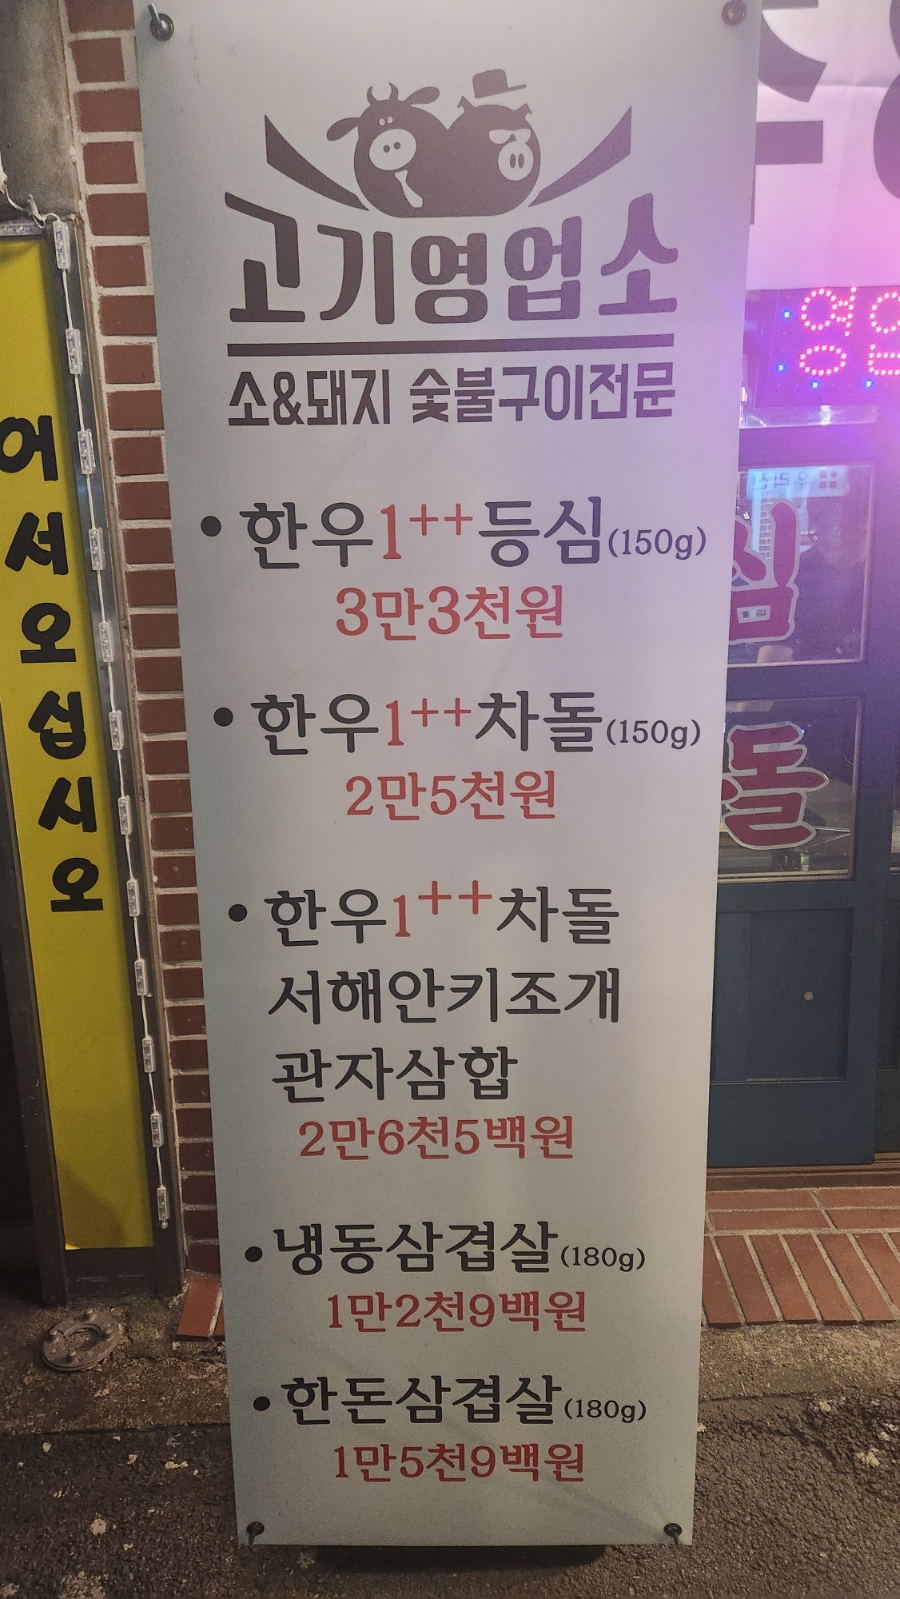 고기영업소
소&돼지 숯불구이전문
• 한우1++등심(150g)
3만3천원
• 한우1++차돌(150g)
2만5천원
• 한우1++차돌
서해안키조개
관자삼합
2만6천5백원
• 냉동삼겹살(180g)
1만2천9백원
• 한돈삼겹살(180g)
1만5천9백원
어서오십시오
영업
심
돌